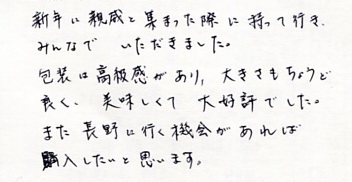 新年に親戚と集まった際に持って行き、
みんなで いただきました。
包装は高級感があり、大きさもちょうど
良く、美味しくて 大好評でした。
また長野に行く機会があれば
購入したいと思います。